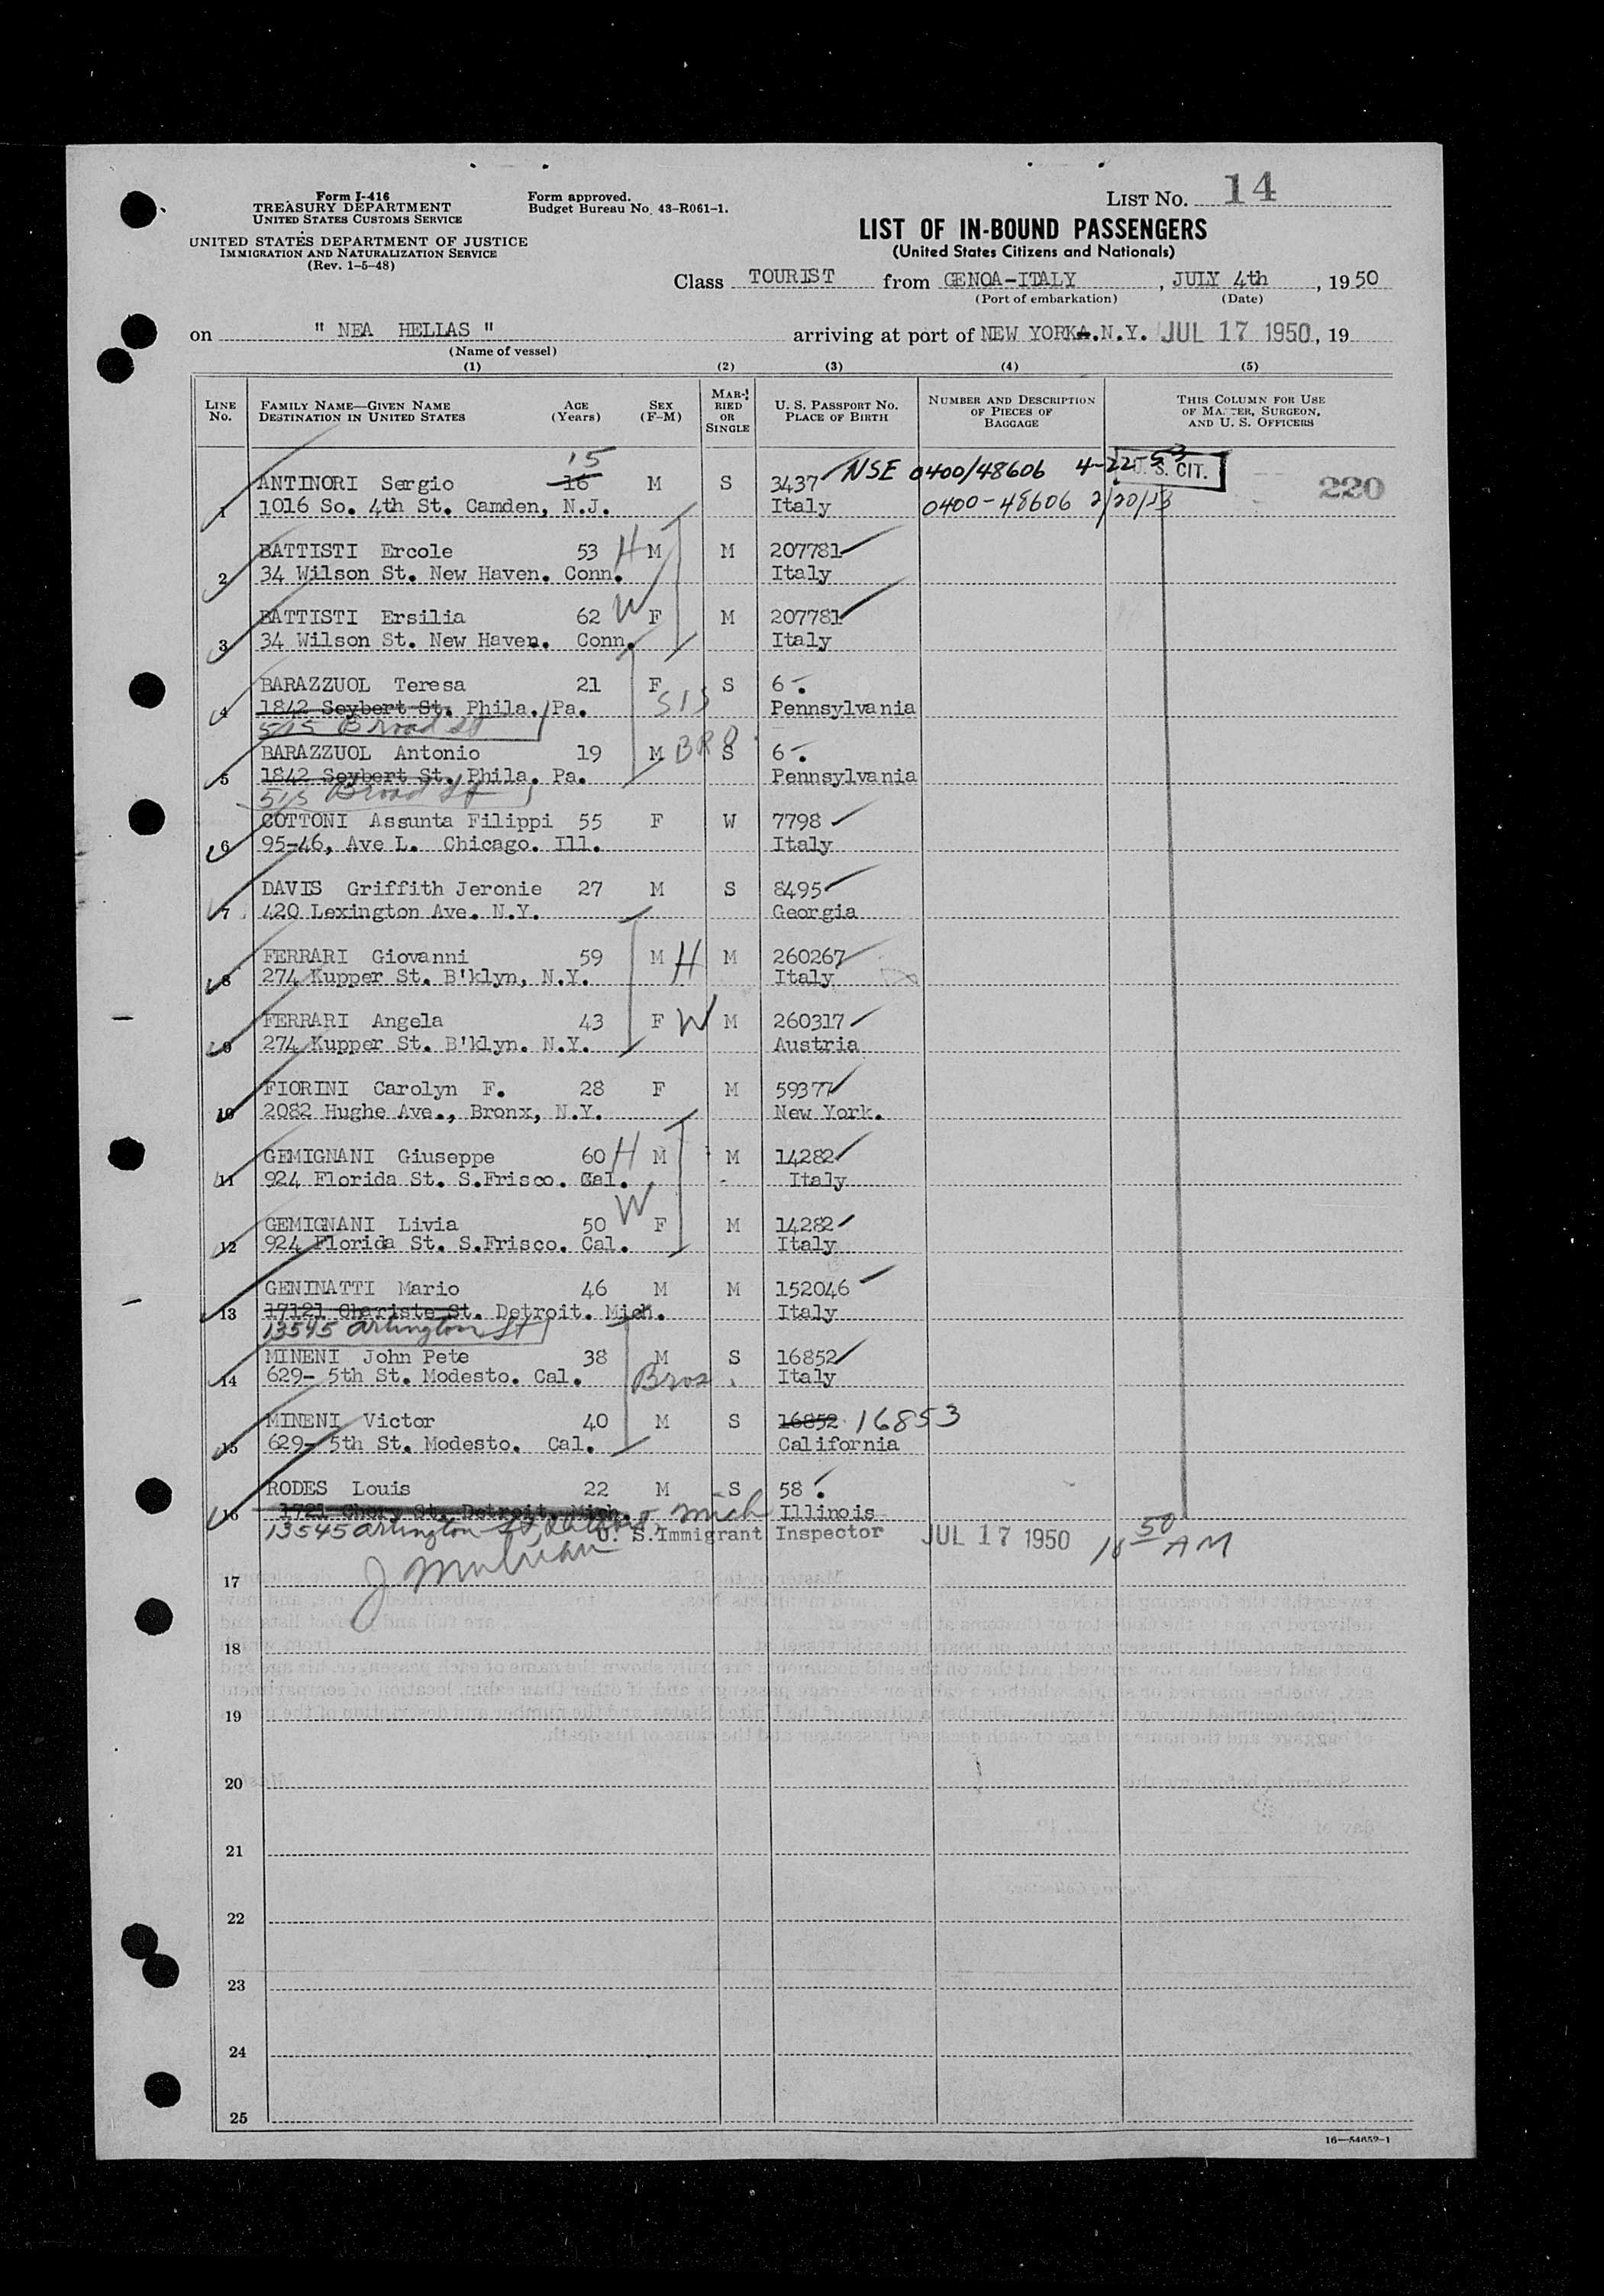 Form I-416
TREASURY DEPARTMENT
UNITED STATES CUSTOMS SERVICE
UNITED STATES DEPARTMENT OF JUSTICE
IMMIGRATION AND NATURALIZATION SERVICE
(Rev. 1-5-48)
Form approved.
Budget Bureau No. 43-R061-1.
LIST NO. 14
LIST OF IN-BOUND PASSENGERS
(United States Citizens and Nationals)
Class TOURIST from GENOA-ITALY, JULY 4th, 1950
(Port of embarkation) (Date)
on " NEA HELLAS " arriving at port of NEW YORK.N.Y. JUL 17 1950, 19
(Name of vessel)
(1) (2) (3) (4) (5)
LINE NO. FAMILY NAME—GIVEN NAME DESTINATION IN UNITED STATES AGE (Years) SEX (F-M) MARRIED OR SINGLE U. S. PASSPORT NO. PLACE OF BIRTH NUMBER AND DESCRIPTION OF PIECES OF BAGGAGE THIS COLUMN FOR USE OF MASTER, SURGEON, AND U. S. OFFICERS
15
ANTINORI Sergio 16 M S 3437 NSE 0400/48606 4-22-53 U. S. CIT. 220
1 1016 So. 4th St. Camden, N.J. Italy 0400-48606 2/20/53
BATTISTI Ercole 53 H M M 207781
2 34 Wilson St. New Haven. Conn. Italy
BATTISTI Ersilia 62 W F M 207781
3 34 Wilson St. New Haven. Conn. Italy
BARAZZUOL Teresa 21 F S 6-.
4 1842 Seybert St. Phila. Pa. SIS Pennsylvania
515 Broad St
BARAZZUOL Antonio 19 M BRO. S 6-.
5 1842 Seybert St. Phila. Pa. Pennsylvania
515 Broad St
COTTONI Assunta Filippi 55 F W 7798
6 95-46, Ave L. Chicago. Ill. Italy
DAVIS Griffith Jeronie 27 M S 8495
7 420 Lexington Ave. N.Y. Georgia
FERRARI Giovanni 59 M H M 260267
8 274 Kupper St. B'klyn, N.Y. Italy
FERRARI Angela 43 F W M 260317
9 274 Kupper St. B'klyn. N.Y. Austria
FIORINI Carolyn F. 28 F M 59377
10 2082 Hughe Ave., Bronx, N.Y. New York.
GEMIGNANI Giuseppe 60 H M M 14282
11 924 Florida St. S.Frisco. Cal. Italy
GEMIGNANI Livia 50 W F M 14282
12 924 Florida St. S.Frisco. Cal. Italy
GENINATTI Mario 46 M M 152046
13 17121 Chariste St. Detroit. Mich. Italy
13545 Arlington St
MINENI John Pete 38 M S 16852
14 629- 5th St. Modesto. Cal. Bros. Italy
MINENI Victor 40 M S 16852 16853
15 629- 5th St. Modesto. Cal. California
RODES Louis 22 M S 58.
16 1721 Chory St. Detroit. Mich. Mich Illinois
13545 Arlington St, Detroit
U. S. Immigrant Inspector JUL 17 1950 10 50 AM
17
18
19
20
21
22
23
24
25
16—54652-1